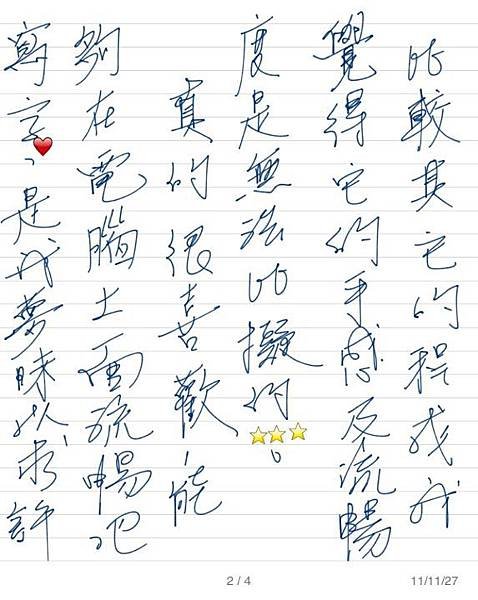 比較其它的程式我
覺得它的手感及流暢
度是無法比擬的。
真的很喜歡、能
夠在電腦上面流暢地
寫字、是我夢昧以求許
2 / 4
11/11/27